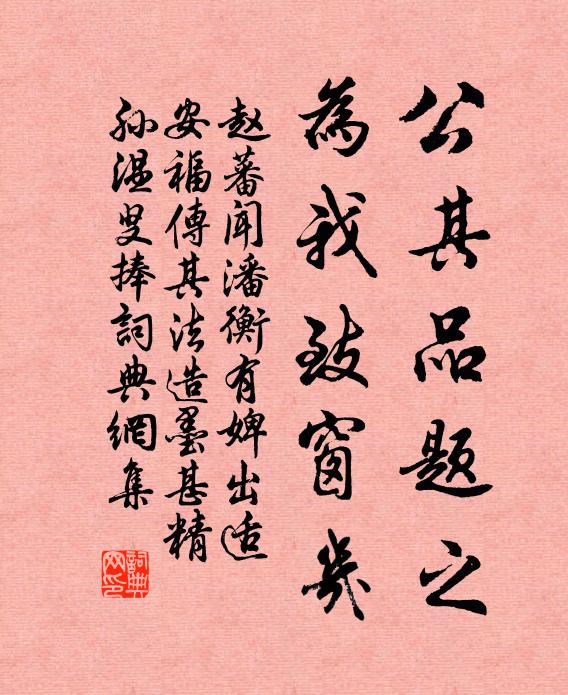 公其品题之
為我致窗幾
赵蕃闻潘衡有婢出适
安福傳其法造墨甚精
孙温叟捧詞典網集
詞典
网印